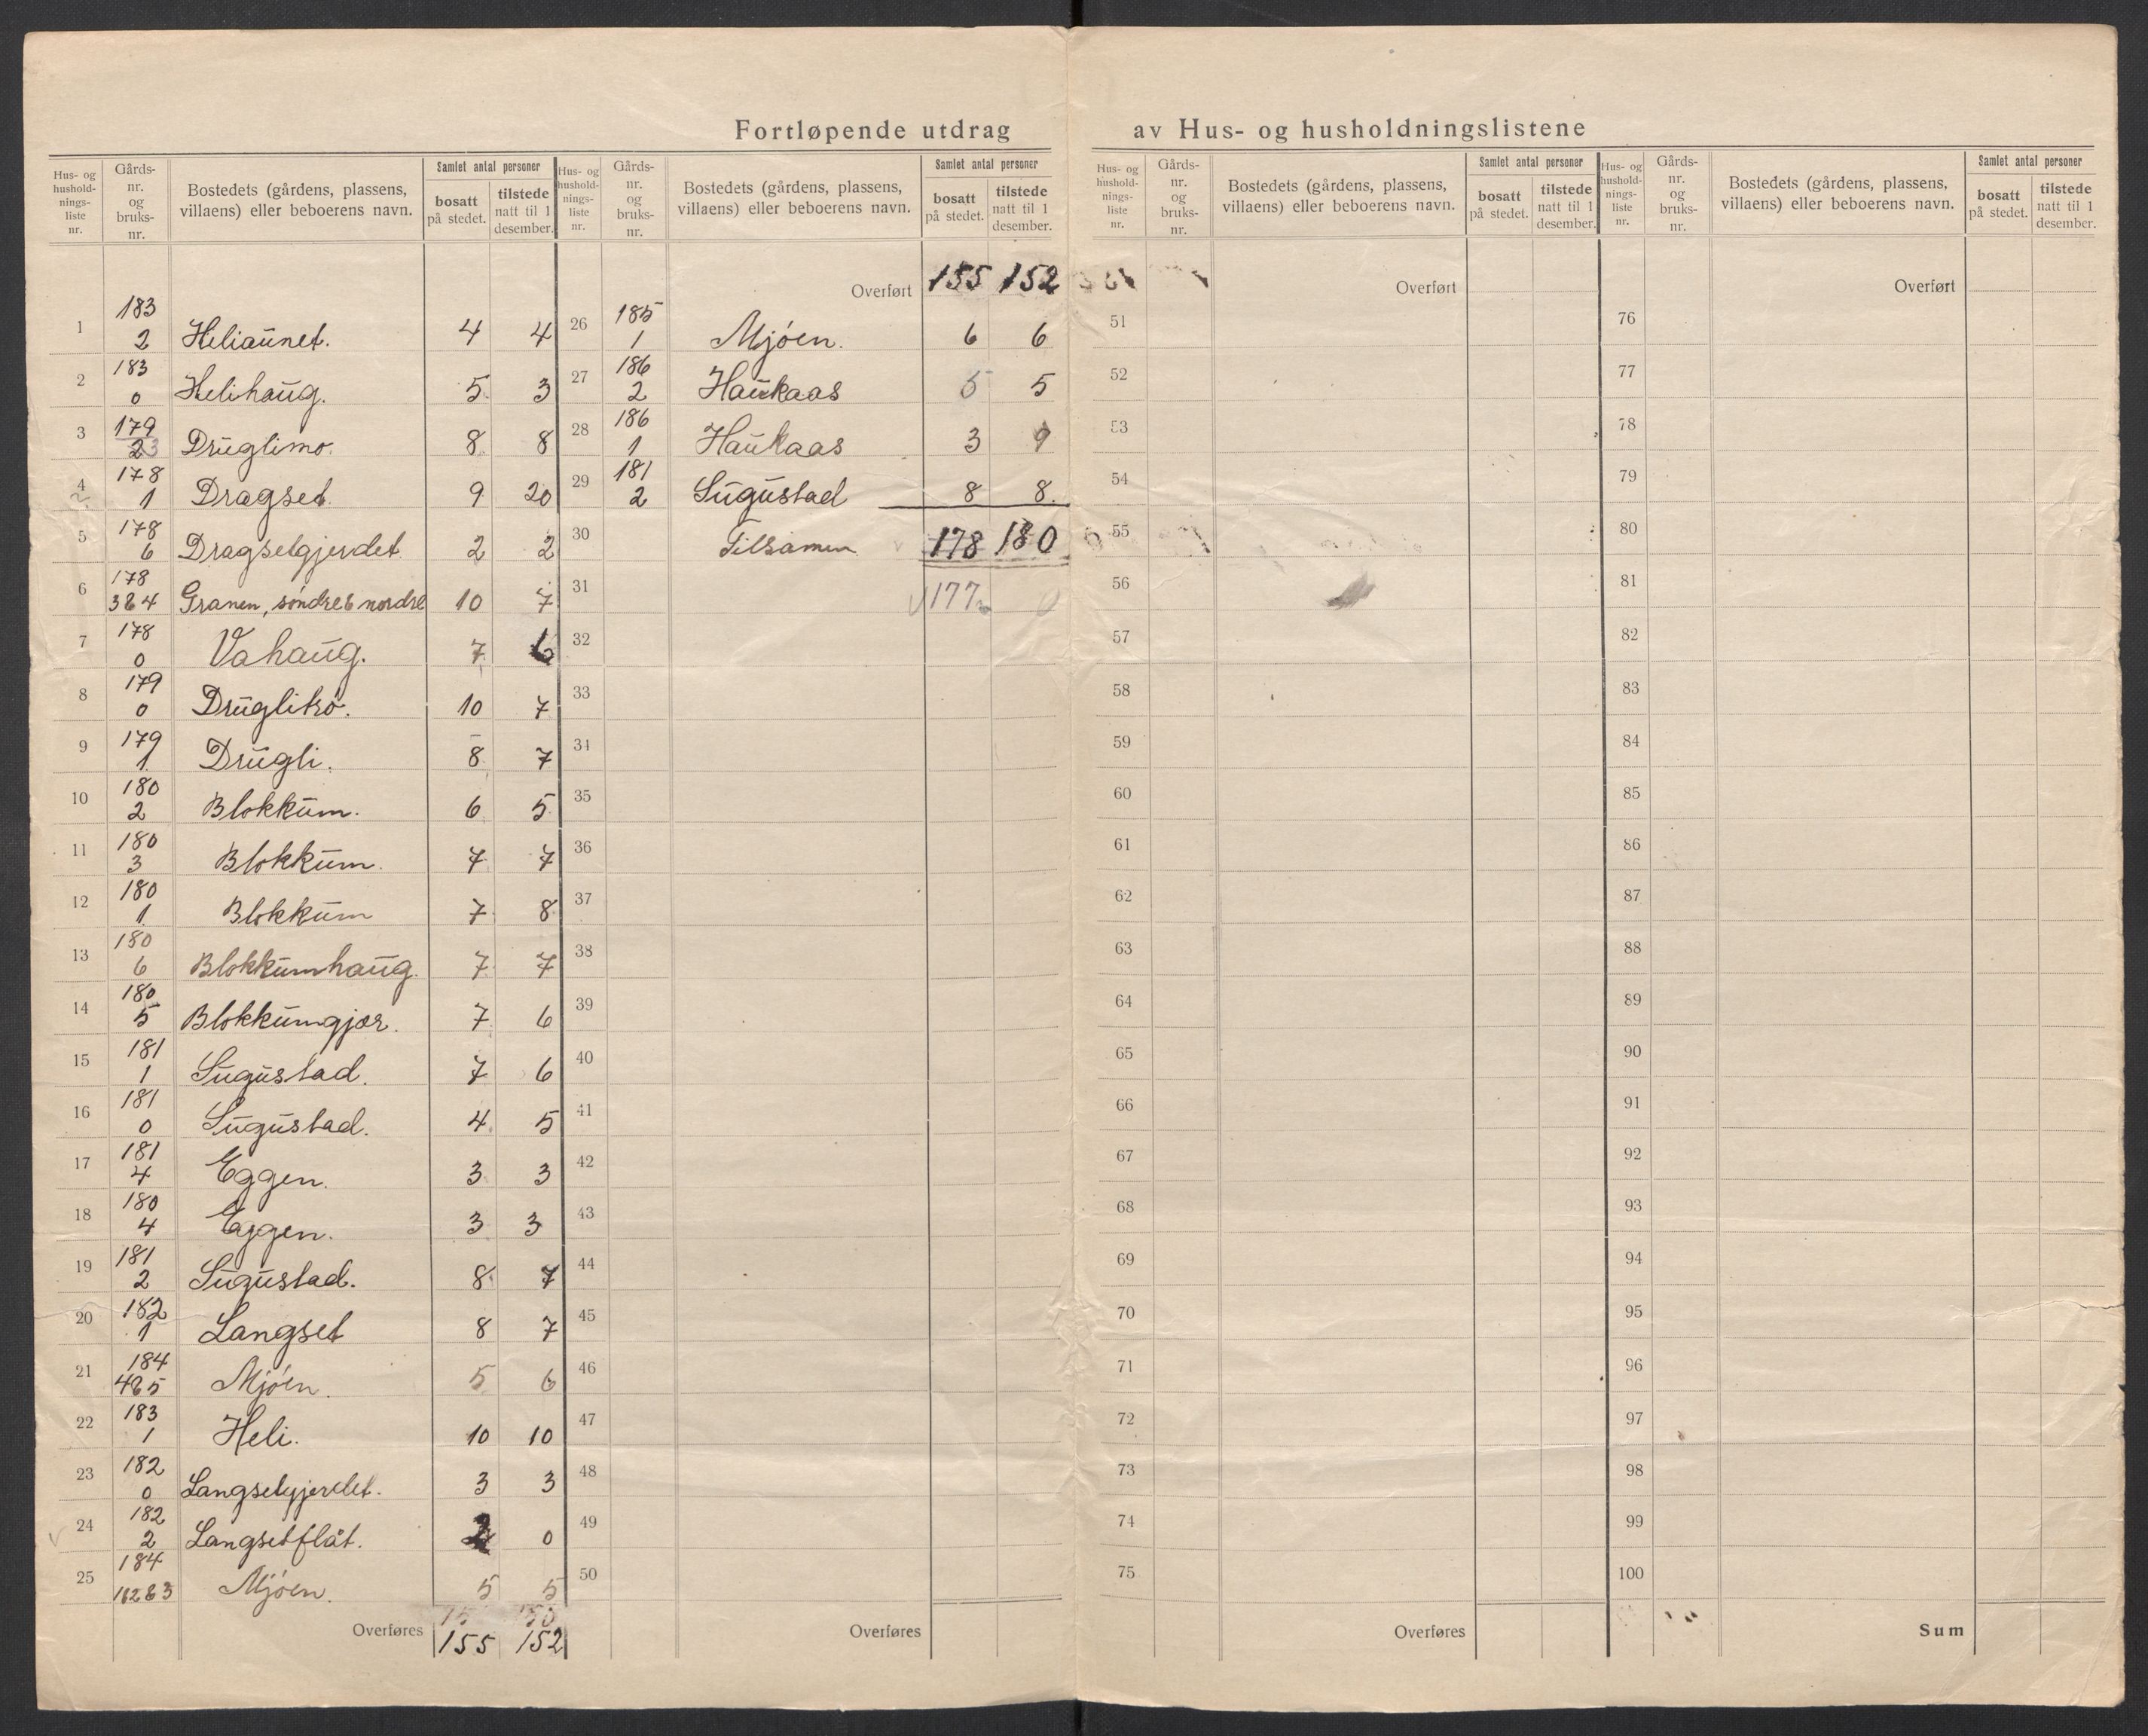 Fortløpende utdrag av Hus- og husholdningslistene
Hus- og husholdnings-liste nr. Gårds-nr. og bruks-nr. Bostedets (gårdens, plassens, villaens) eller beboerens navn. Samlet antal personer bosatt på stedet. tilstede natt til 1 desember.
1 183 2 Heliaunet. 4 4
2 183 0 Helihaug. 5 3
3 179 23 Druglimo. 8 8
4 178 1 Dragset. 9 20
5 178 6 Dragsetgjerdet. 2 2
6 178 3&4 Granen, søndre & nordre 10 7
7 178 0 Vahaug. 7 6
8 179 0 Druglitrø. 10 7
9 179 1 Drugli. 8 7
10 180 2 Blokkum. 6 5
11 180 3 Blokkum. 7 7
12 180 1 Blokkum 7 8
13 180 6 Blokkumhaug. 7 7
14 180 5 Blokkumgjær. 7 6
15 181 1 Sugustad. 7 6
16 181 0 Sugustad. 4 5
17 181 4 Eggen. 3 3
18 180 4 Eggen. 3 3
19 181 2 Sugustad. 8 7
20 182 1 Langset 8 7
21 184 4&5 Mjøen. 5 6
22 183 1 Heli. 10 10
23 182 0 Langsetgjerdet. 3 3
24 182 2 Langsetflåt. 2 0
25 184 1&2&3 Mjøen. 5 5
Overføres 155 152
Hus- og husholdnings-liste nr. Gårds-nr. og bruks-nr. Bostedets (gårdens, plassens, villaens) eller beboerens navn. Samlet antal personer bosatt på stedet. tilstede natt til 1 desember.
Overført 155 152
26 185 1 Mjøen. 6 6
27 186 2 Haukaas 5 5
28 186 1 Haukaas 3 9
29 181 2 Sugustad 8 8.
30 Tilsamen 178 180
31 177
32
33
34
35
36
37
38
39
40
41
42
43
44
45
46
47
48
49
50
Overføres
Hus- og husholdnings-liste nr. Gårds-nr. og bruks-nr. Bostedets (gårdens, plassens, villaens) eller beboerens navn. Samlet antal personer bosatt på stedet. tilstede natt til 1 desember.
Overført
51
52
53
54
55
56
57
58
59
60
61
62
63
64
65
66
67
68
69
70
71
72
73
74
75
Overføres
Hus- og husholdnings-liste nr. Gårds-nr. og bruks-nr. Bostedets (gårdens, plassens, villaens) eller beboerens navn. Samlet antal personer bosatt på stedet. tilstede natt til 1 desember.
Overført
76
77
78
79
80
81
82
83
84
85
86
87
88
89
90
91
92
93
94
95
96
97
98
99
100
Sum